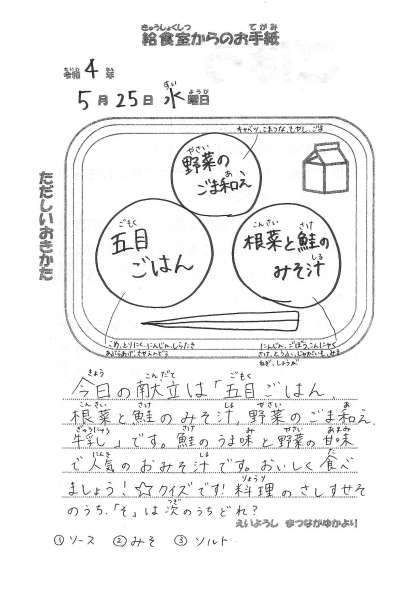 給食室からのお手紙
令和 4 年
5月25日 水曜日
キャベツ、こまつな、もやし、ごま
野菜の
ごま和え
五目
ごはん
根菜と鮭の
みそ汁
ただしいおきかた
こめ、とりにく、にんじん、しらたき
あぶらあげ、さやえんどう
にんじん、ごぼう、こんにゃく
さけ、とうふ、じゃがいも、みそ
ねぎ、しょうが
今日の献立は「五目ごはん、
根菜と鮭のみそ汁、野菜のごま和え、
牛乳」です。鮭のうま味と野菜の甘味
で人気のおみそ汁です。おいしく食べ
ましょう！☆クイズです！料理のさしすせそ
のうち、「そ」は次のうちどれ？
えいようし まつながゆかより
①ソース ②みそ ③ソルト